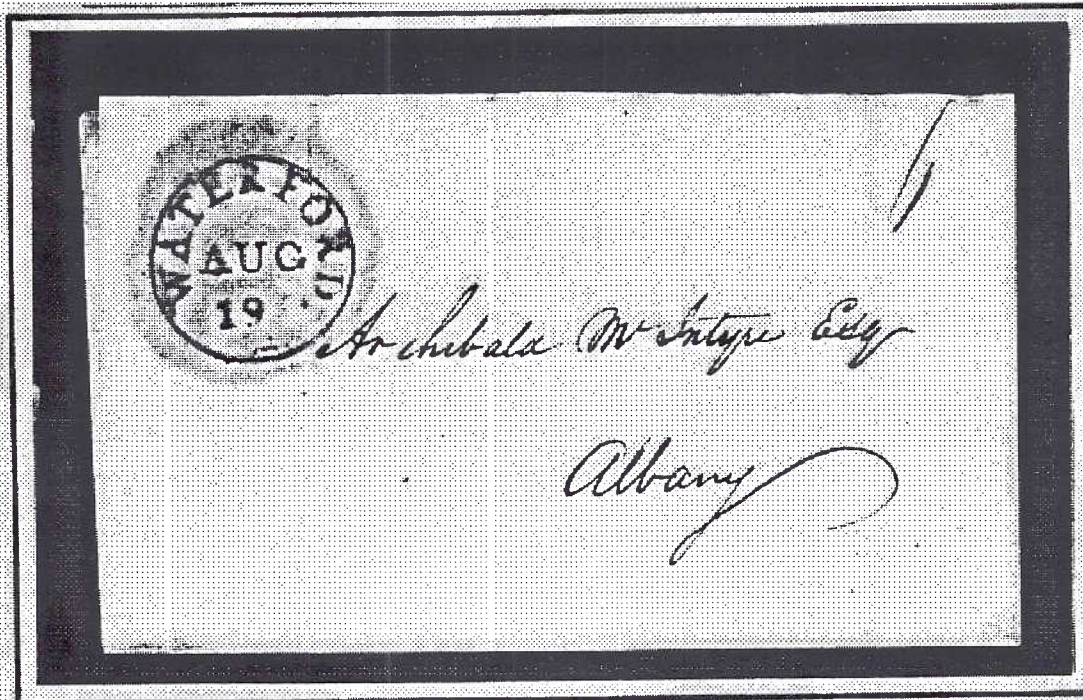 WATERFORD.
AUG
19
6
Archibald McIntyre Esq
Albany